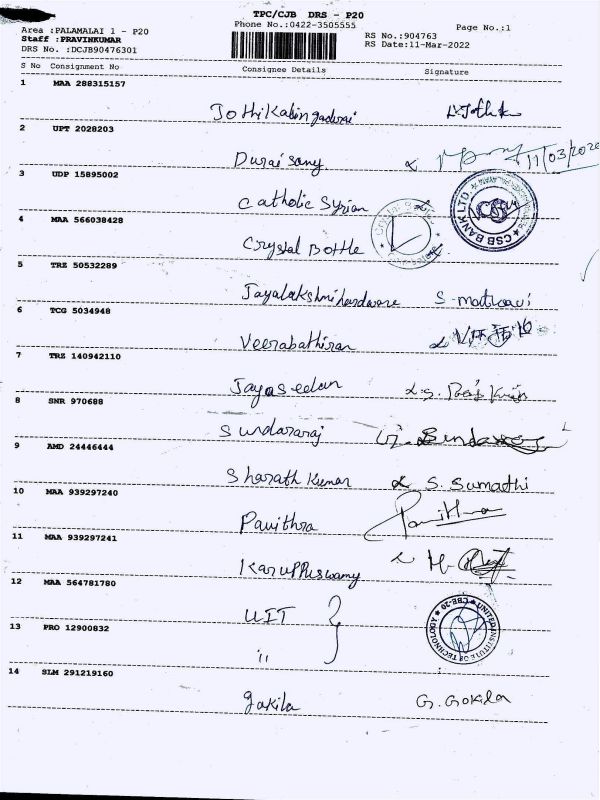 TPC/CJB DRS - P20
Phone No.:0422-3505555
Page No.:1
Area :PALAMALAI 1 - P20
Staff :PRAVINKUMAR
DRS No. :DCJB90476301
RS No.:904763
RS Date:11-Mar-2022
S No Consignment No Consignee Details Signature
1 MAA 288315157
Jothikalingadurai
2 UPT 2028203
Duraisamy 11/03/2020
3 UDP 15895002
Catholic Syrian CSB BANK LTD.
4 MAA 566038428
Crystal Bottle
5 TRZ 50532289
Jayalakshmi hardware S-mathavi
6 TCG 5034948
Veerabathiran
7 TRZ 140942110
Jayaseelan
8 SNR 970688
Sundararaj
9 AMD 24446444
Sharath Kumar S. Sumathi
10 MAA 939297240
Pavithra Pavithra
11 MAA 939297241
Karuppuswamy
12 MAA 564781780
UIT UNITED INSTITUTE OF TECHNOLOGY CBE-20
13 PRO 12900832
11
14 SLM 291219160
gokila G. Gokila